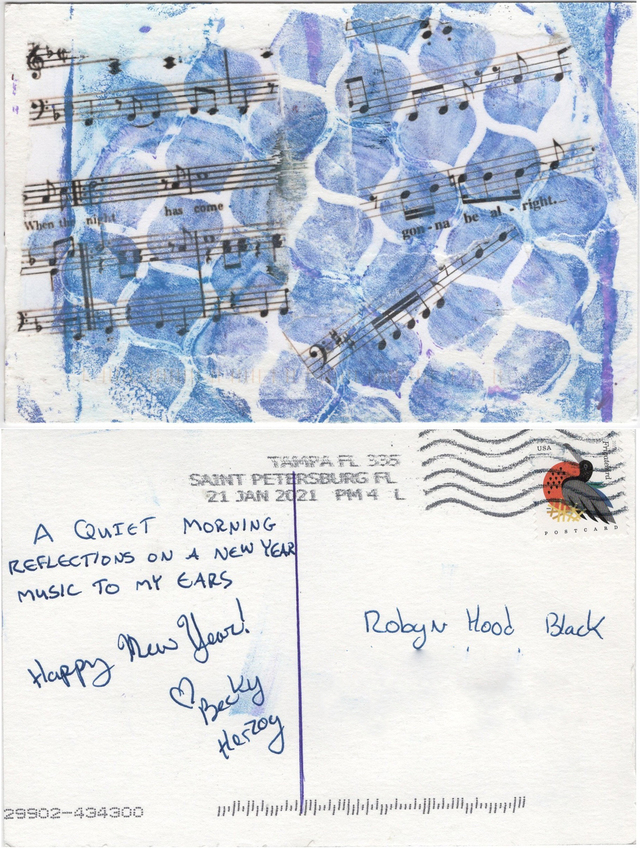 When the night has come
gon-na be al-right.
TAMPA FL 335
SAINT PETERSBURG FL
21 JAN 2021 PM 4 L
USA
POSTCARD
A QUIET MORNING
REFLECTIONS ON A NEW YEAR
MUSIC TO MY EARS
Happy New Year!
♡ Becky
Herzog
Robyn Hood Black
29902-434300